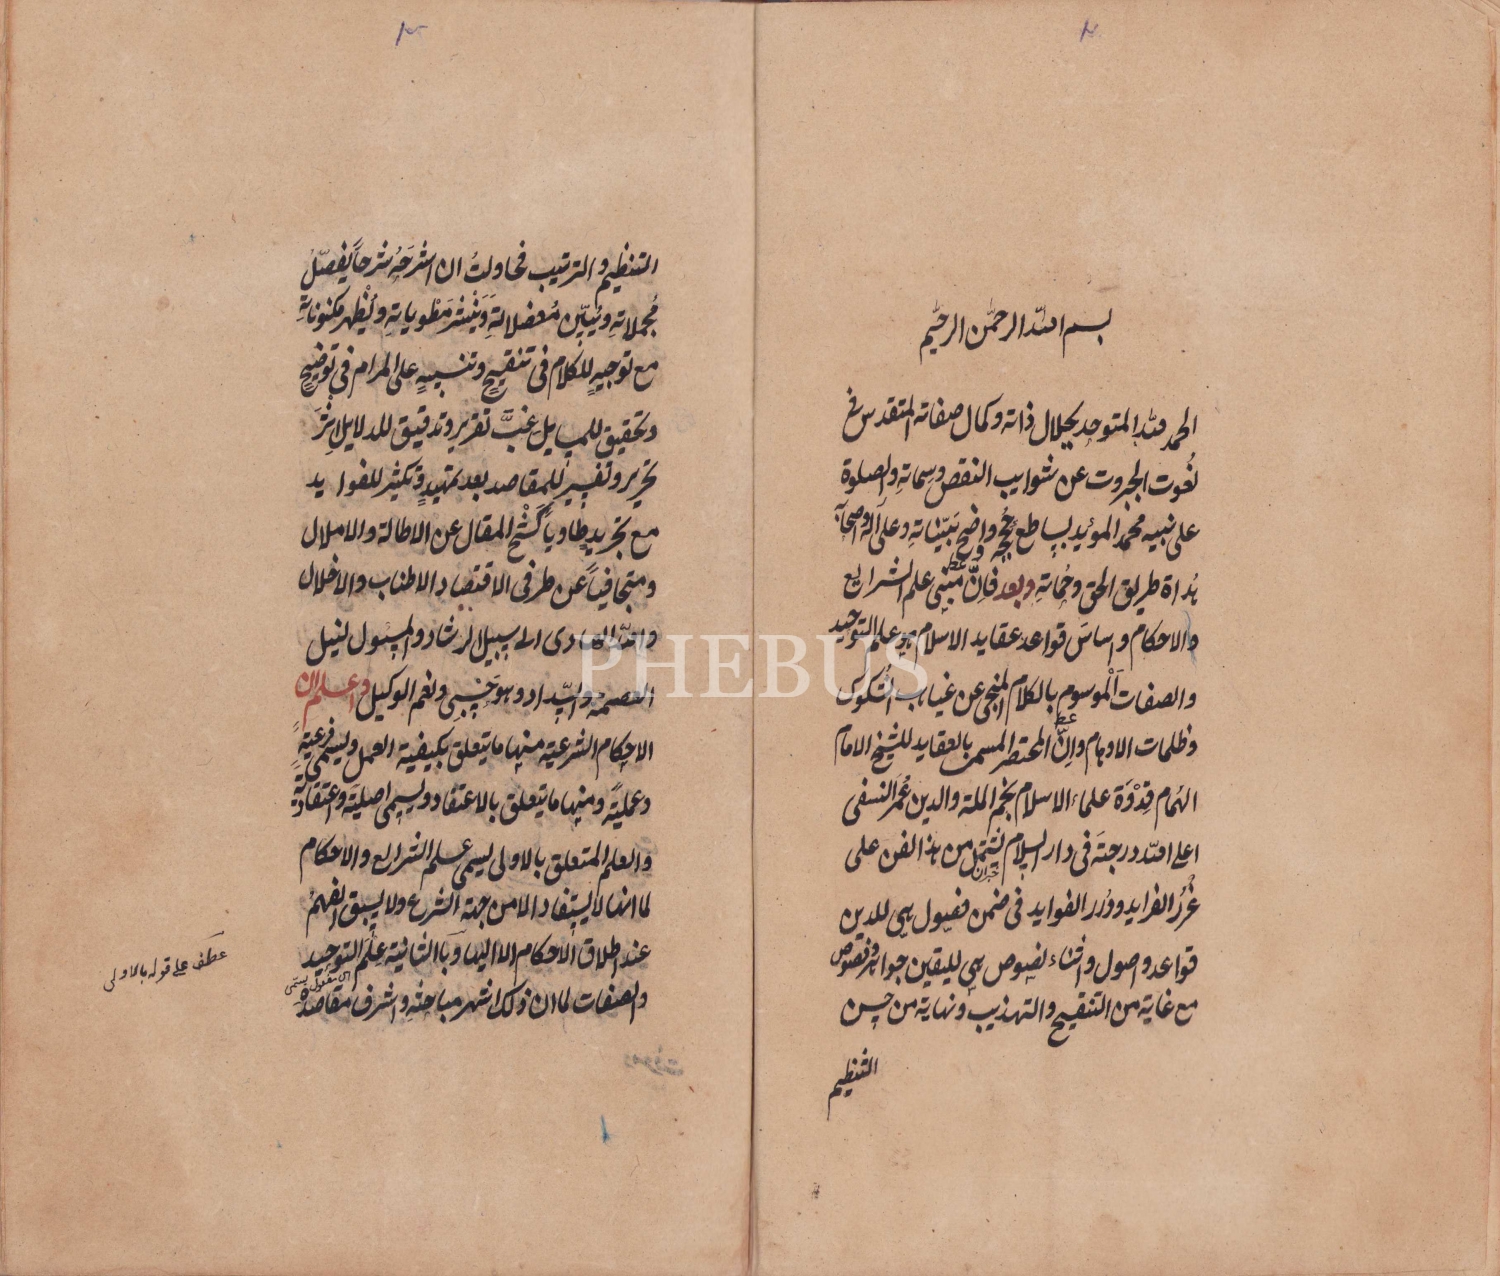 ٢
بسم الله الرحمن الرحيم
الحمد لله المتوحد بجلال ذاته وكمال صفاته المتقدس فى
نُعوت الجبروت عن شوايب النقص وسِماتِهِ والصلوة
على نبيه محمد المؤيد بساطع حُججه وواضح بَيّناتِهِ وعلى آله واصحابه
هُداة طريق الحق وحُماتِهِ وبعد فاِنَّ مَبْنى علم الشرايع
عطف
والاحكام واساسَ قواعد عقايد الاسلام هو علم التوحيد
والصفات الْموسوم بالكلام المُنْجى عن غياهب الشكوك
وظلمات الاوهام واِنَّ المختصر المسمى بالعقايد للشيخ الامام
عطف
الهُمام قِدْوَة علماء الاسلام نجم الملة والدين عُمَر النسفى
اعلى الله درجته فى دار السلام يشتمل من هذا الفن على
خبر ان
غُرَرُ الفرايد ودُرر الفوايد فى ضمن فصول هى للدين
قواعد واصول واثناء نصوص هى لليقين جواهر وفصوص
مع غاية من التنقيح والتهذيب ونهاية من حسن
التنظيم
٣
التنظيم والترتيب فحاولتُ ان اشرَحَهُ شرحاً يفصّلُ
مُجملاتِهِ ويُبيّن مُعضلاتهِ وَيَنْشرَ مَطْوياتِهِ ويُظهر مكنوناتِهِ
مع توجيهٍ للكلام فى تنقيحٍ وتنبيهٍ على المرام فى توضيحٍ
وتحقيق للمسايل غبَّ تقرير وتدقيق للدلايل اِثْرَ
تحرير وتفسير للمقاصد بعد تمهيدٍ وتكثير للفوايد
مع تجريدٍ طاوياً كَشْحَ المقال عن الاطالة والاملال
ومتجافياً عن طرفى الاقتصاد الاطناب والاخلال
والله الهادى الى سبيل الرشاد والمسئول لنيل
العصمة والسّداد وهو حَسْبى ونعم الوكيل واعلم ان
الاحكام الشرعية منها ما يتعلق بكيفية العمل ويسمى فرعيةً
وعمليّة ومنها ما يتعلق بالاعتقاد ويسمى اصليّة واعتقاديّة
والعلم المتعلق بالاولى يسمى علم الشرايع والاحكام
لما انها لا يستفاد الا من جهة الشرع ولا يسبق الفهمُ
عند اطلاق الاحكام الا اليها وبالثانية علم التوحيد
والصفات لما ان ذلك اشهر مباحثه واشرف مقاصده
عطف على قوله بالاولى
PHEBUS